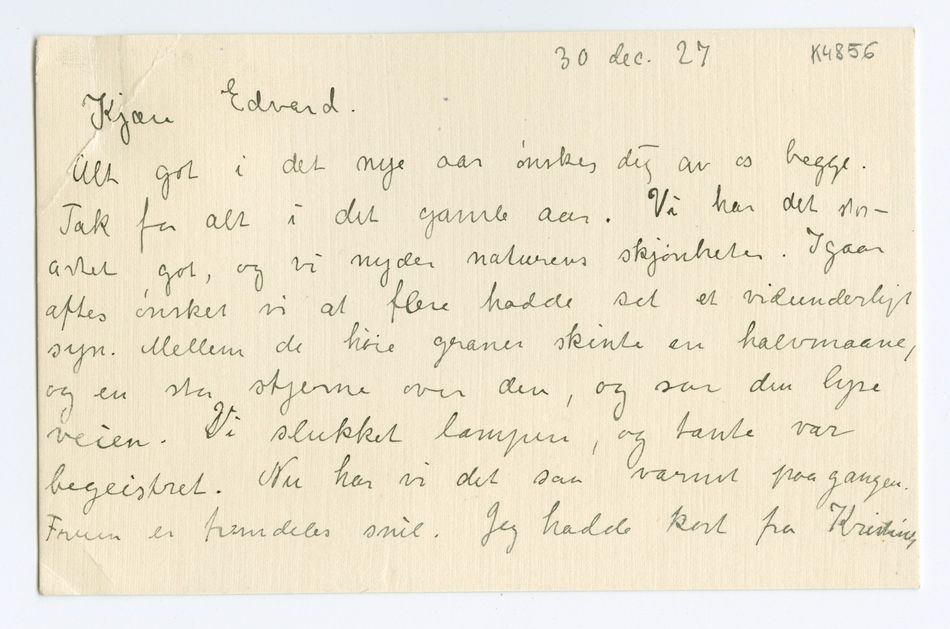 30 dec. 27 K4856
Kjære Edvard.
Alt got i det nye aar ønskes dig av os begge.
Tak for alt i det gamle aar. Vi har det stor-
artet got, og vi nyder naturens skjønheter. Igaar
aftes ønsket vi at flere hadde set et vidunderligt
syn. Mellem de høie graner skinte en halvmaane,
og en stor stjerne over den, og saa den lyse
veien. Vi slukket lampen, og tante var
begeistret. Nu har vi det saa varmt paa gangen.
Fruen er fremdeles snil. Jeg hadde kort fra